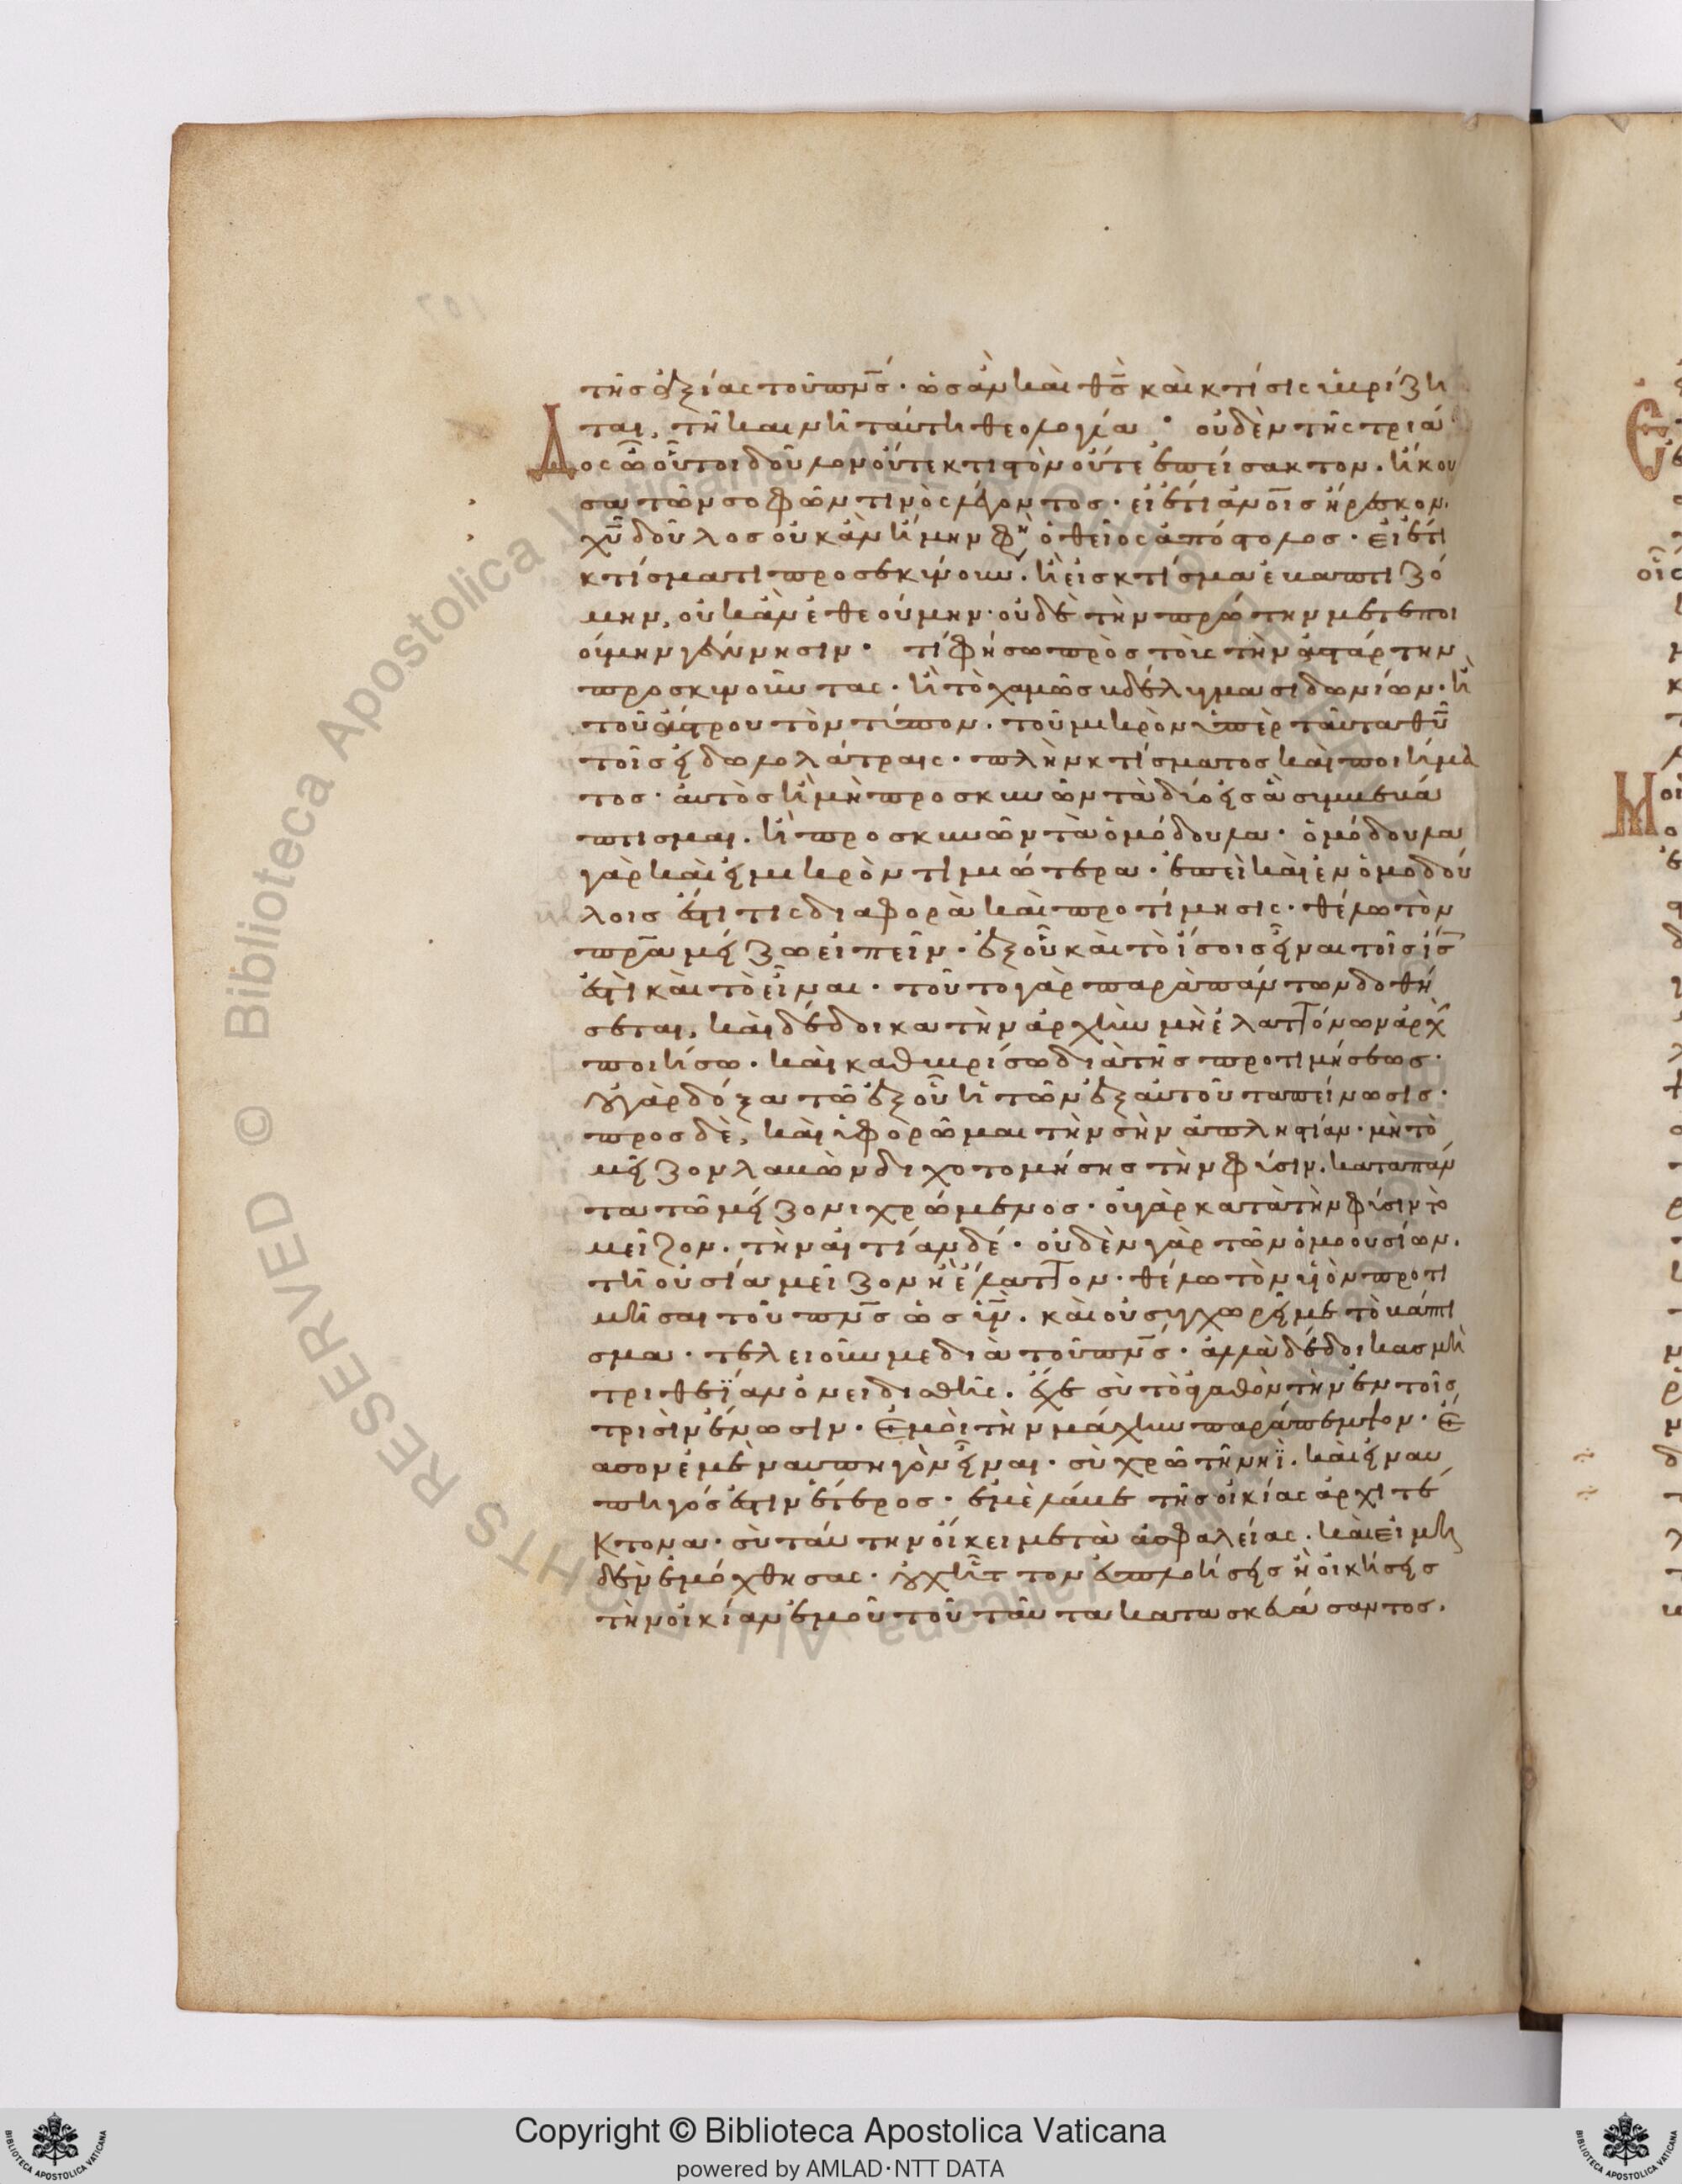 τῆς ἀξίας τοῦ πν̅ς· ὡς ἂν καὶ θ̅ς καὶ κτίσις ὑβρίζη
ται, τῆ καινῆ ταύτη θεολογία· οὐδὲν τῆς τριά
Δος ὦ οὗτοι δοῦλον οὔτε κτιστὸν οὔτε ἐπείσακτον. ἤκου
σα τῶν σοφῶν τινὸς λέγοντος· εἰ ἔτι ἀν̅οις ἤρεσκον.
χ̅υ δοῦλος οὐκ ἂν ἤμην φη ὁ θεῖος ἀπόστολος· εἰ ἔτι
κτίσματι προσεκύνουν. ἢ εἰς κτίσμα ἐβαπτιζό
μην, οὐκ ἂν ἐθεούμην· οὐδὲ τὴν πρώτην μετεποι
ούμην γέννησιν· τί φήσω πρὸς τοὺς τὴν ἀστάρτην
προσκυνοῦντας· ἢ τὸ χαμὼς βδέλυγμα σιδωνίων· ἢ
τοῦ ἄστρου τὸν τύπον. τοῦ μικρὸν ὑπὲρ ταῦτα θ̅υ
τοῖς εἰδωλολάτραις· πλὴν κτίσματος καὶ ποιήμα
τος· αὐτὸς ἢ μὴ προσκυνῶν τὰ δύο εἰς ἃ συμβεβά
πτισμαι. ἢ προσκυνῶν τὰ ὁμόδουλα· ὁμόδουλα
γὰρ καὶ εἰ μικρὸν τιμιώτερα· ἐπεὶ καὶ ἐν ὁμοδού
λοις ἐστί τις διαφορὰ καὶ προτίμησις· θέλω τὸν
πρ̅α μείζω εἰπεῖν· ἐξ οὗ καὶ τὸ ἴσοις εἶναι τοῖς ἴσ
ἐστὶ καὶ τὸ εἶναι· τοῦτο γὰρ παρὰ πάντων δοθή
σεται, καὶ δέδοικα τὴν ἀρχὴν μὴ ἐλαττόνων ἀρχ
ποιήσω· καὶ καθυβρίσω διὰ τῆς προτιμήσεως·
οὐ γὰρ δόξα τῶ ἐξ οὗ ἡ τῶν ἐξ αὐτοῦ ταπείνωσις·
προσδὲ, καὶ ὑφορῶμαι τὴν σὴν ἀπληστίαν· μὴ τὸ
μεῖζον λαβὼν διχοτομήσης τὴν φύσιν. κατὰ πάν
τα τῶ μείζονι χρώμενος· οὐ γὰρ κατὰ τὴν φύσιν τὸ
μεῖζον. τὴν αἰτίαν δέ· οὐδὲν γὰρ τῶν ὁμοουσίων.
τῆ οὐσία μεῖζον ἢ ἔλαττον· θέλω τὸν υἱὸν προτι
μῆσαι τοῦ πν̅ς ὡς υ̅ν. καὶ οὐ συγχωρεῖ με τὸ βάπτι
σμα· τελειοῦν με διὰ τοῦ πν̅ς· ἀλλὰ δέδοικας μὴ
τριθεΐαν ὀνειδισθῆς. ἔχε σὺ τὸ ἀγαθὸν τὴν ἐν τοῖς
τρισὶν ἕνωσιν· ἐμοὶ τὴν μάχην παράπεμψον· ἔ
ασον ἐμὲ ναυπηγὸν εἶναι· σὺ χρῶ τῆ νηῒ. καὶ εἰ ναυ
πηγός ἐστιν ἕτερος· ἐμὲ λάβε τῆς οἰκίας ἀρχιτέ
κτονα· σὺ ταύτην οἴκει μετὰ ἀσφαλείας. καὶ εἰ μη
δὲν ἐμόχθησας· οὐχ ἧττον εὐπλοήσεις ἢ οἰκήσεις
τὴν οἰκίαν ἐμοῦ τοῦ ταῦτα κατασκευάσαντος.
Copyright © Biblioteca Apostolica Vaticana
powered by AMLAD·NTT DATA